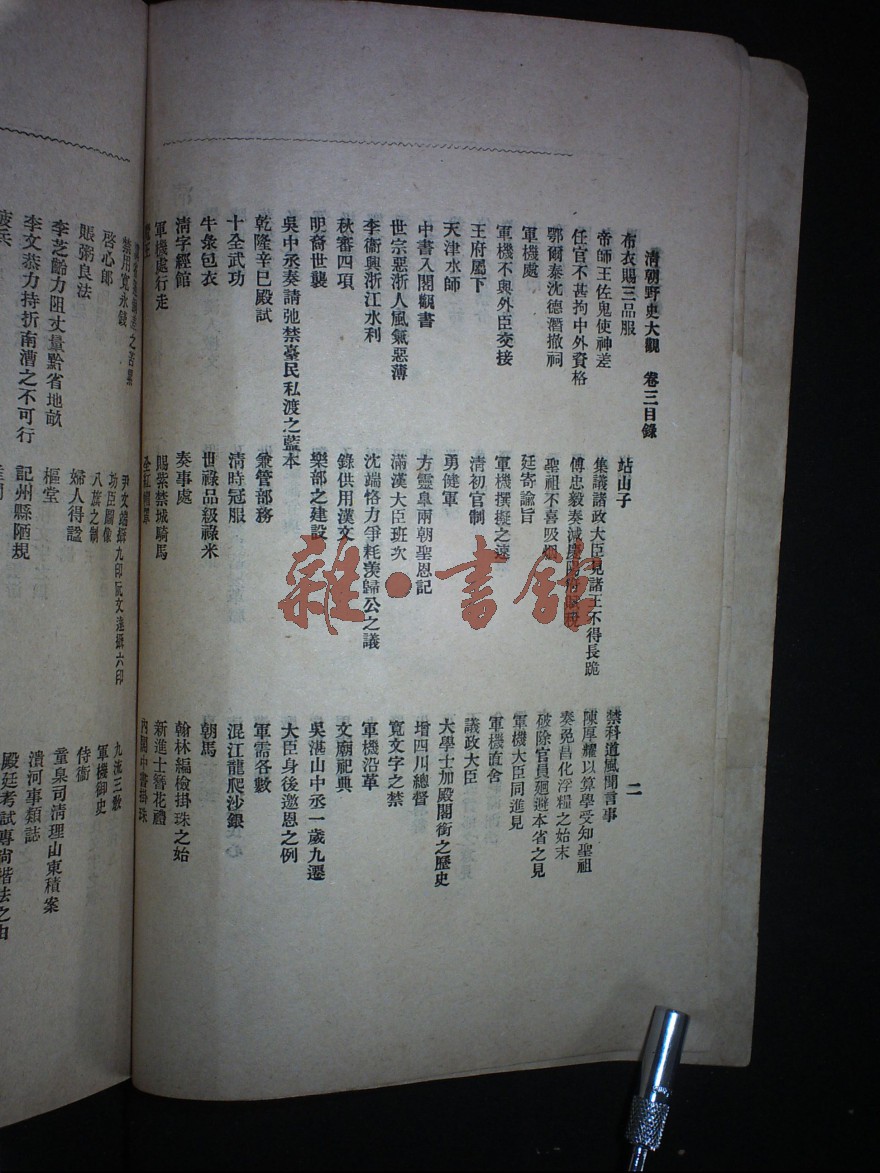 清朝野史大觀 卷三目錄
二
布衣賜三品服
帝師王佐鬼使神差
任官不甚拘中外資格
鄂爾泰沈德潛撤祠
軍機處
軍機不與外臣交接
王府屬下
天津水師
中書入閣觀書
世宗惡浙人風氣惡薄
李衞興浙江水利
秋審四項
明裔世襲
吳中丞奏請弛禁臺民私渡之藍本
乾隆辛巳殿試
十全武功
牛彔包衣
清字經館
軍機處行走
站山子
集議諸政大臣見諸王不得長跪
傅忠毅奏減
聖祖不喜吸烟
廷寄諭旨
軍機撰擬之速
清初官制
勇健軍
方靈臯兩朝聖恩記
滿漢大臣班次
沈端恪力爭耗羨歸公之議
錄供用漢文
樂部之建設
兼管部務
清時冠服
世祿品級祿米
奏事處
賜紫禁城騎馬
禁科道風聞言事
陳厚耀以算學受知聖祖
奏免昌化浮糧之始末
破除官員廻避本省之見
軍機大臣同進見
軍機直舍
議政大臣
大學士加殿閣銜之歷史
增四川總督
寬文字之禁
軍機沿革
文廟祀典
吳湛山中丞一歲九遷
大臣身後邀恩之例
軍需各數
混江龍爬沙銀
朝馬
翰林編檢掛珠之始
新進士簪花禮
內閣中書掛珠
之苦累
禁用寬永錢
啓心郎
賬粥良法
李芝齡力阻丈量黔省地畝
李文恭力持折南漕之不可行
尹文端攝九印阮文達攝六印
功臣圖像
八旗之制
婦人得諡
樞堂
記州縣陋規
九流三教
軍機御史
侍衞
童臬司清理山東積案
潰河事類誌
殿廷考試專尚楷法之由
雜·書館